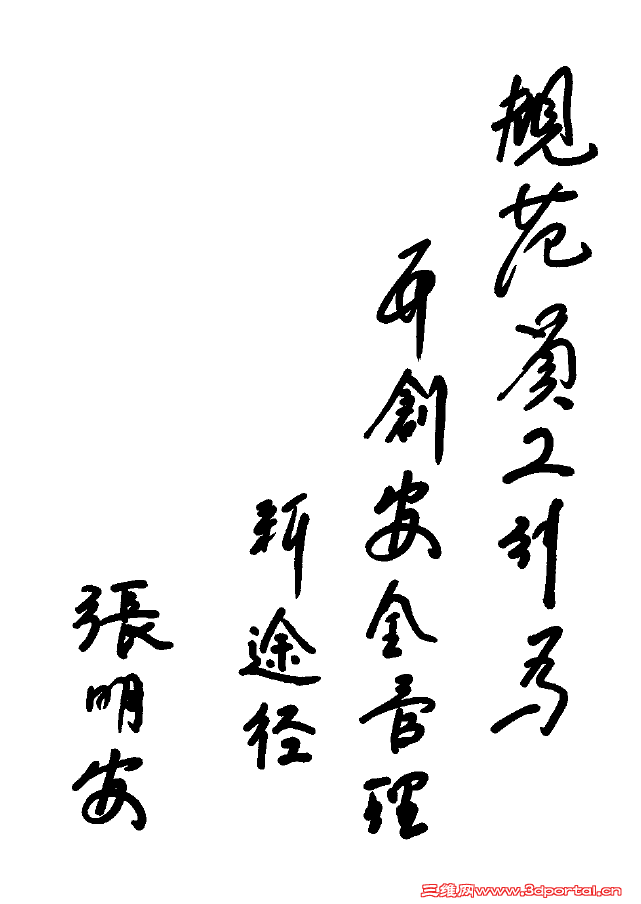 規范員工行為
开創安全管理
新途径
張明安
三维网www.3dportal.cn